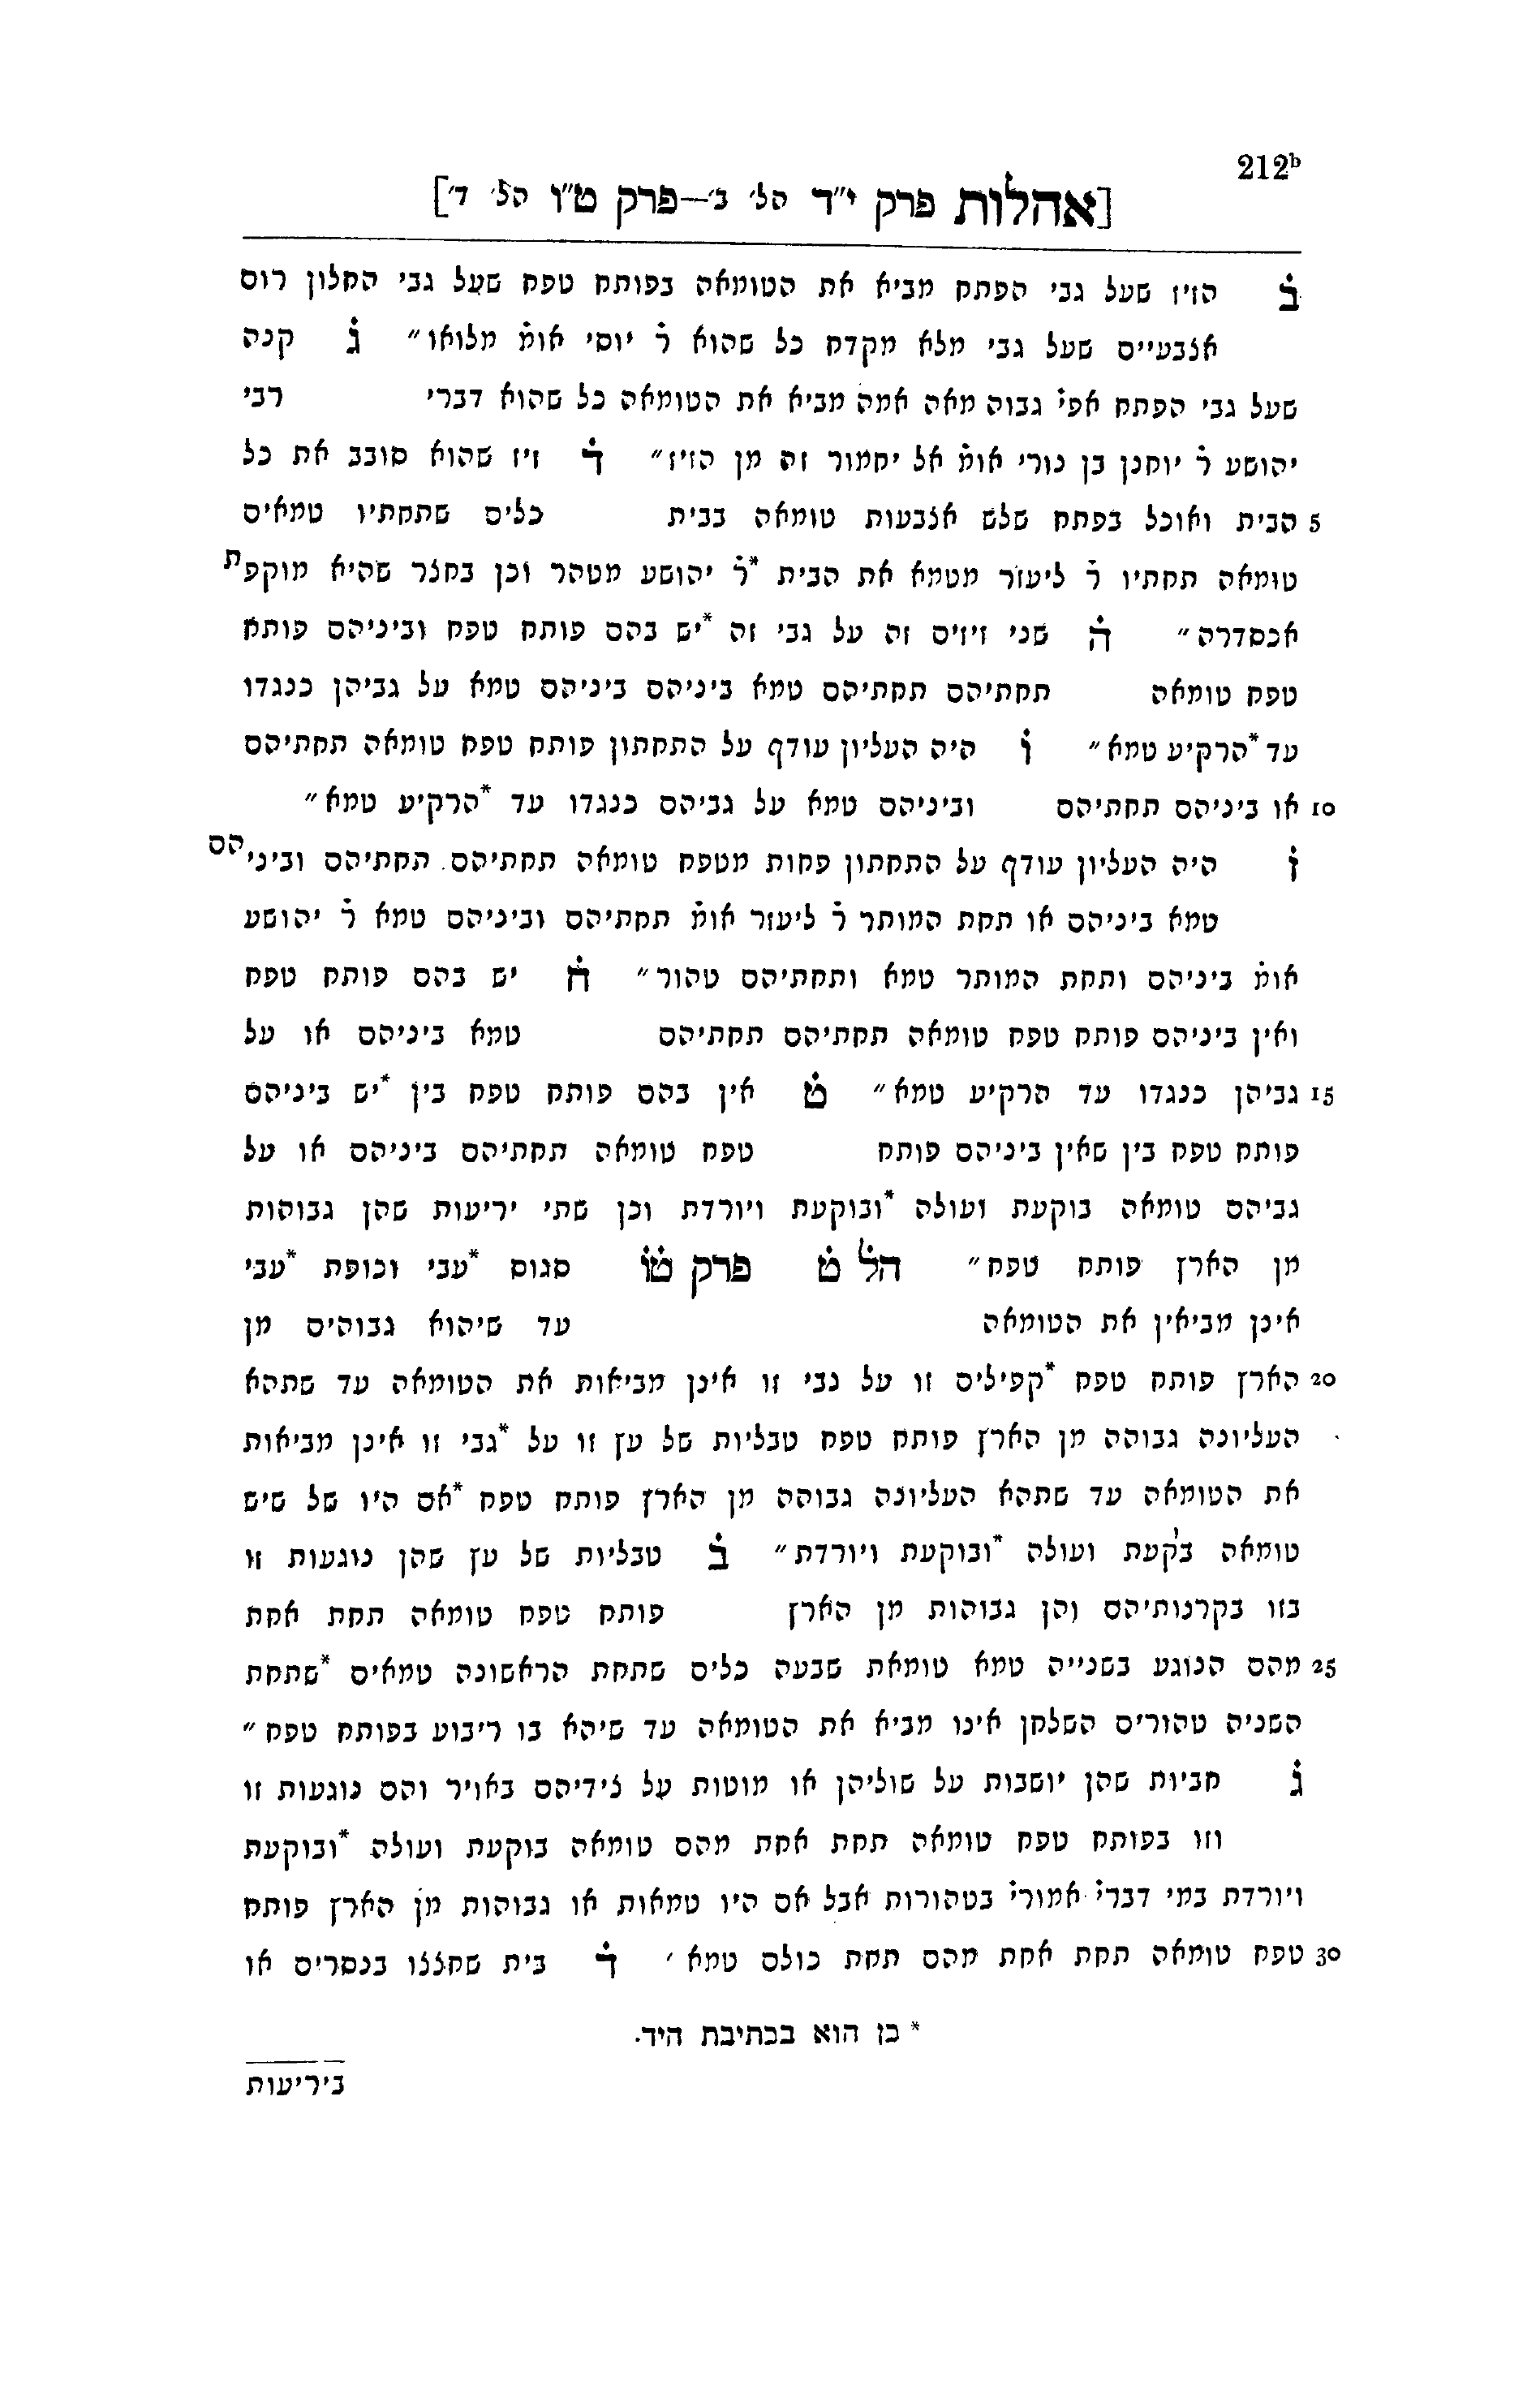 212b
[אהלות פרק י״ד הל׳ ב׳—פרק ט״ו הל׳ ד׳]
ב הזיז שעל גבי הפתח מביא את הטומאה בפותח טפח שעל גבי החלון רום
אצבעיים שעל גבי מלא מקדח כל שהוא ר̇ יוסי אומ̇ מלואו״ ג קנה
שעל גבי הפתח אפי̇ גבוה מאה אמה מביא את הטומאה כל שהוא דברי רבי
יהושע ר̇ יוחנן בן נורי אומ̇ אל יחמור זה מן הזיז״ ד זיז שהוא סובב את כל
5 הבית ואוכל בפתח שלש אצבעות טומאה בבית כלים שתחתיו טמאים
טומאה תחתיו ר̇ ליעזר מטמא את הבית *ר̇ יהושע מטהר וכן בחצר שהיא מוקפת
אכסדרה״ ה שני זיזים זה על גבי זה *יש בהם פותח טפח וביניהם פותח
טפח טומאה תחתיהם תחתיהם טמא ביניהם ביניהם טמא על גביהן כנגדו
עד *הרקיע טמא״ ו היה העליון עודף על התחתון פותח טפח טומאה תחתיהם
10 או ביניהם תחתיהם וביניהם טמא על גביהם כנגדו עד *הרקיע טמא״
ז היה העליון עודף על התחתון פחות מטפח טומאה תחתיהם תחתיהם וביניהם
טמא ביניהם או תחת המותר ר̇ ליעזר אומ̇ תחתיהם וביניהם טמא ר̇ יהושע
אומ̇ ביניהם ותחת המותר טמא ותחתיהם טהור״ ח יש בהם פותח טפח
ואין ביניהם פותח טפח טומאה תחתיהם תחתיהם טמא ביניהם או על
15 גביהן כנגדו עד הרקיע טמא״ ט אין בהם פותח טפח בין *יש ביניהם
פותח טפח בין שאין ביניהם פותח טפח טומאה תחתיהם ביניהם או על
גביהם טומאה בוקעת ועולה *ובוקעת ויורדת וכן שתי יריעות שהן גבוהות
מן הארץ פותח טפח״ הל ט פרק טו סגוס *עבי וכופת *עבי
אינן מביאין את הטומאה עד שיהוא גבוהים מן
20 הארץ פותח טפח *קפילים זו על גבי זו אינן מביאות את הטומאה עד שתהא
העליונה גבוהה מן הארץ פותח טפח טבליות של עץ זו על *גבי זו אינן מביאות
את הטומאה עד שתהא העליונה גבוהה מן הארץ פותח טפח *אם היו של שיש
טומאה בקעת ועולה *ובוקעת ויורדת״ ב טבליות של עץ שהן נוגעות זו
בזו בקרנותיהם והן גבוהות מן הארץ פותח טפח טומאה תחת אחת
25 מהם הנוגע בשנייה טמא טומאת שבעה כלים שתחת הראשונה טמאים *שתחת
השניה טהורים השלחן אינו מביא את הטומאה עד שיהא בו ריבוע בפותח טפח״
ג חביות שהן יושבות על שוליהן או מוטות על צידיהם באויר והם נוגעות זו
וזו בפותח טפח טומאה תחת אחת מהם טומאה בוקעת ועולה *ובוקעת
ויורדת במי דברי̇ אמורי̇ בטהורות אבל אם היו טמאות או גבוהות מן הארץ פותח
30 טפח טומאה תחת אחת מהם תחת כולם טמא׳ ד בית שחצצו בנסרים או
* כן הוא בכתיבת היד.
ביריעות